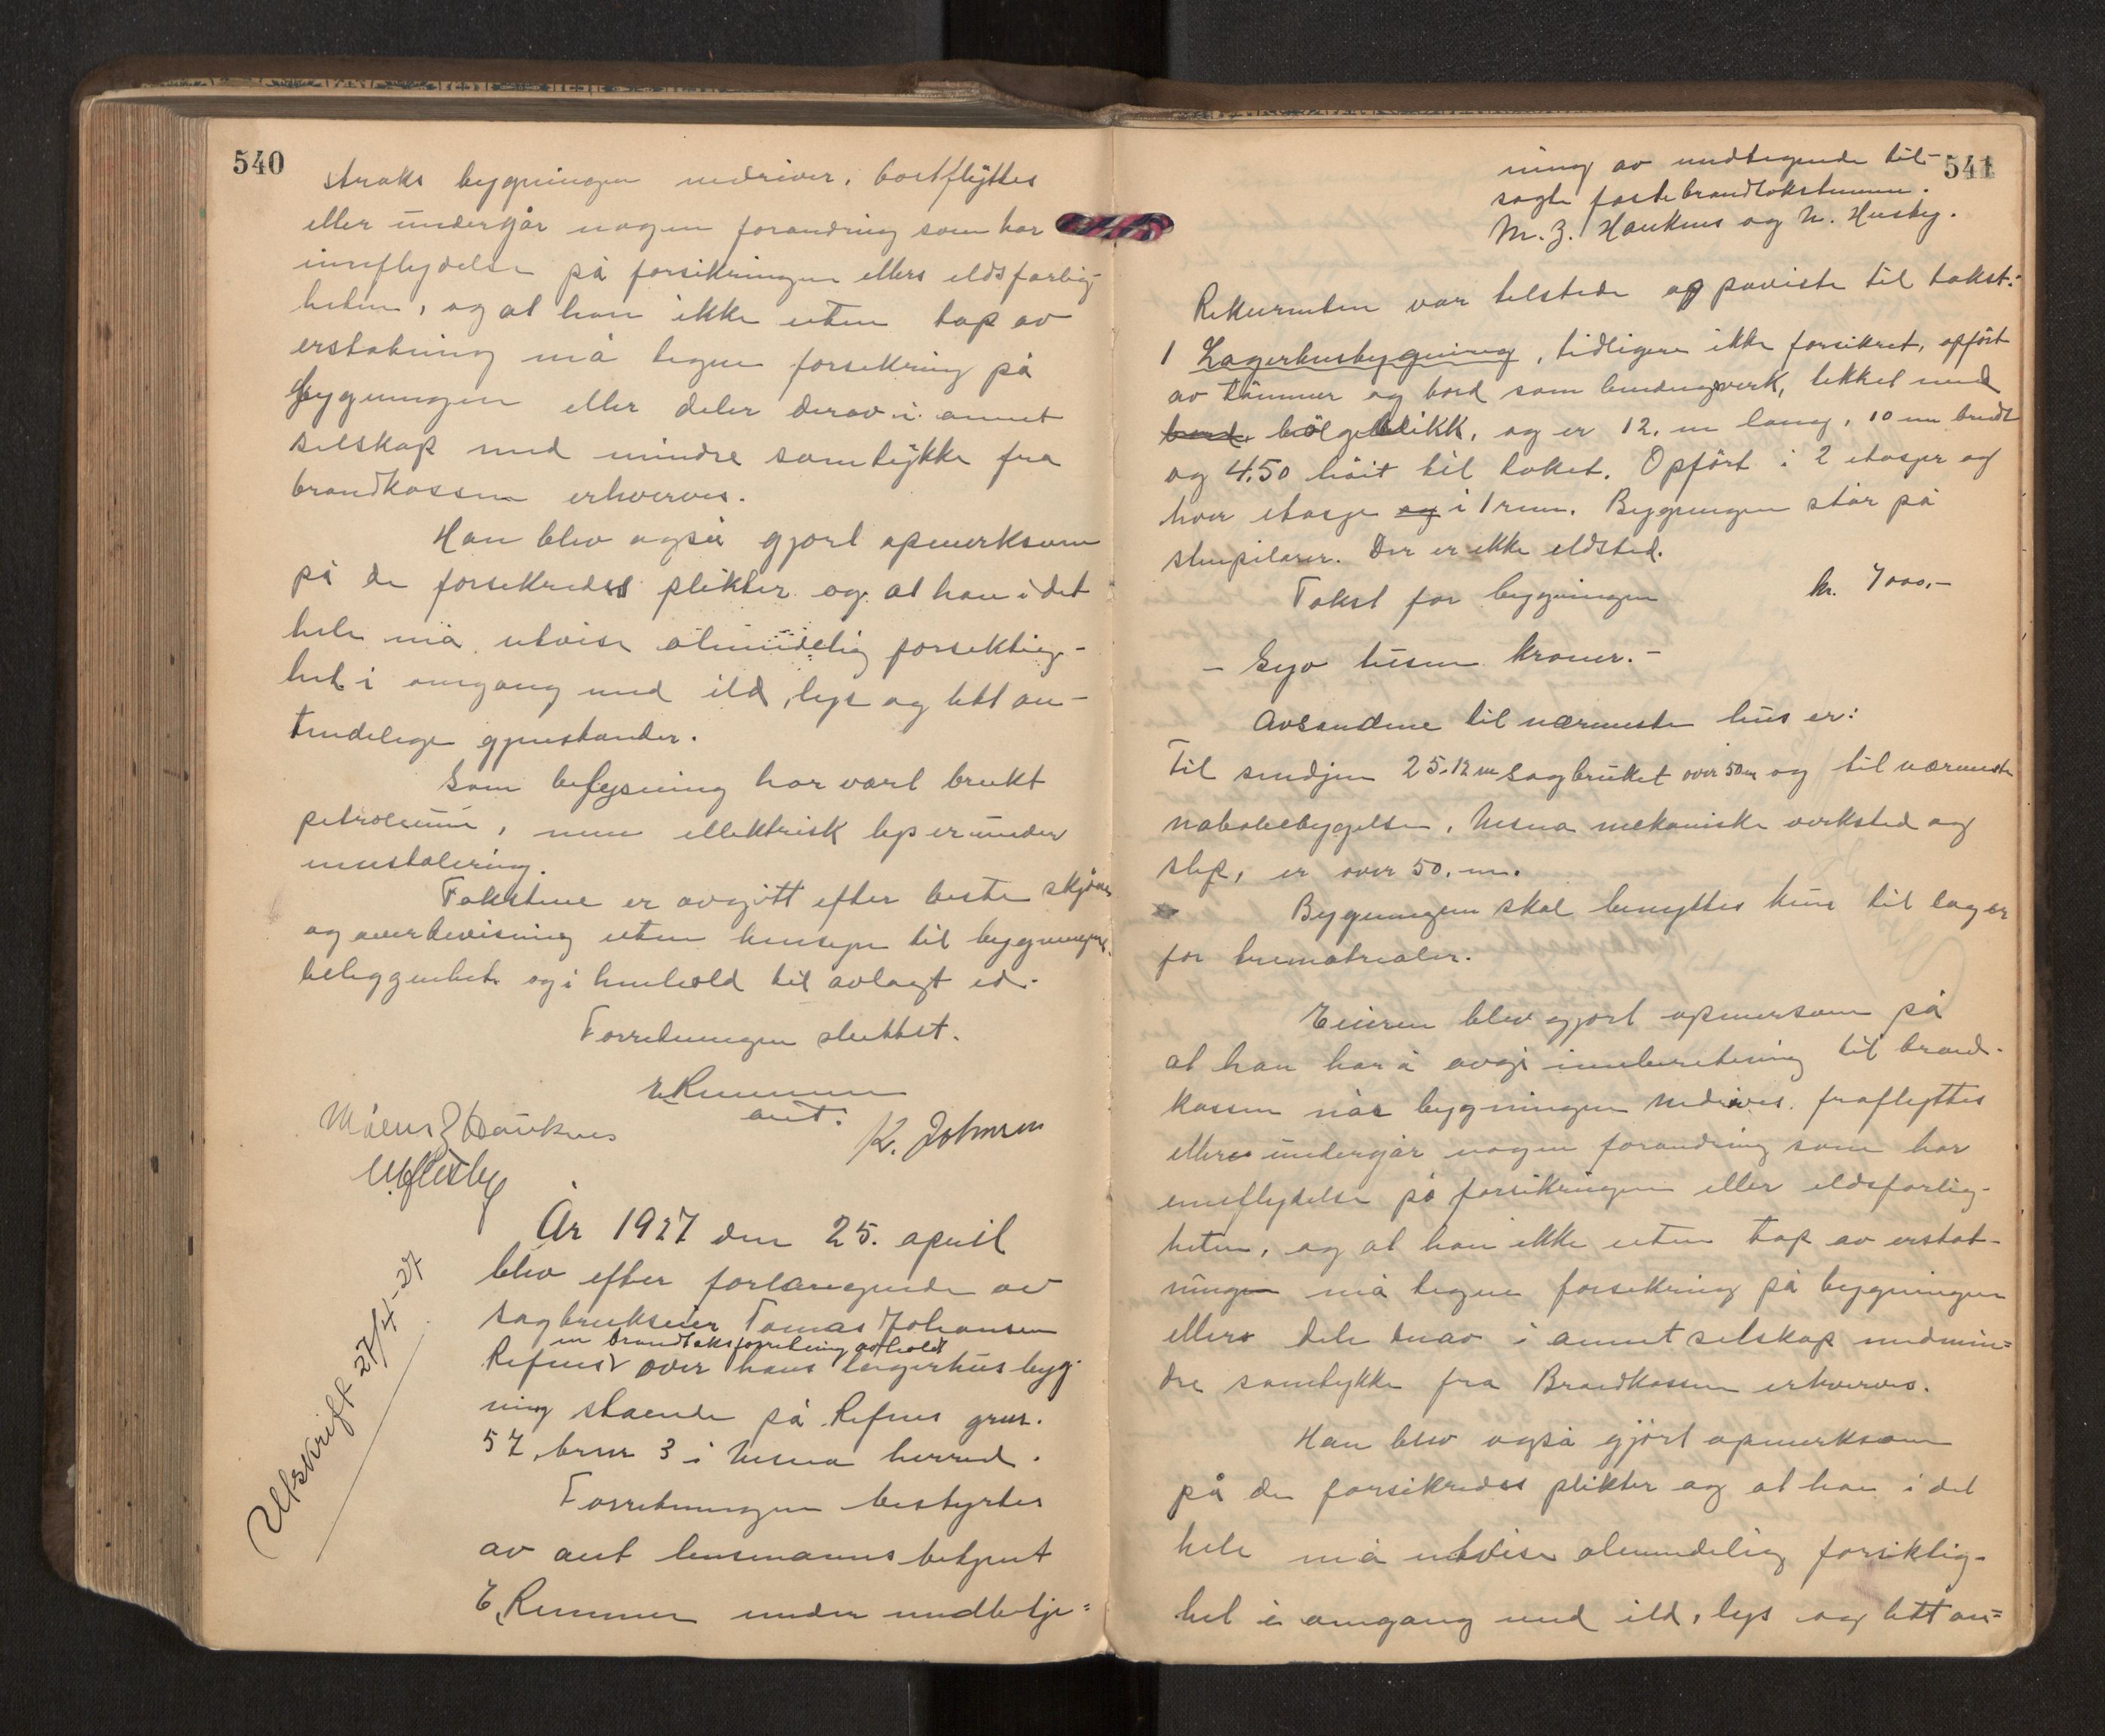 540
straks bygningen nedriver, bortflyttes
eller undergår nogen forandring som har
inflydelse på forsikringen ellers eldsfarlig-
heten, og at han ikke uten tap av
erstatning må tegne forsikring på
bygningen eller deler derav i annet
selskap med mindre samtykke fra
brandkassen erhverves.
Han blev også gjort opmerksom
på de forsikredes plikter og at han i det
hele må utvise almindelig forsiktig-
het i omgang med ild, lys og lett an-
tendelige gjenstander.
Som belysning har vært brukt
petroleum, men ellektrisk lys er under
innstalering.
Takstene er avgitt efter beste skjønn
og overbevisning uten hensyn til bygningens
beliggenhet og i henhold til avlagt ed.
Forretningen sluttet.
E Remmen
aut.
Måens Z Hauknes
K. Johnsen
N. Husby
År 1927 den 25. april
blev efter forlangende av
sagbrukseier Tomas Johansen
en brandtaksforretning avholdt
Refnes over hans lagerhusbyg-
ning stående på Refnes grnr.
57, brnr 3 i Nesna herred.
Forretningen bestyrtes
av aut lensmannsbetjent
E, Remmen under medbetje=
Utskrift 27/4-27
541
ning av undtegnede til-
sagte faste brandtakstmenn.
M. Z. Hauknes og N. Husby.
Rekvirenten var tilstede og paviste til takst:
1 Lagerhusbygning, tidligere ikke forsikret, opført
av tømmer og bord som bindingsverk, tekket med
bord, bølgeblikk, og er 12. m lang, 10 m bredt
og 4.50 høit til taket. Opført i 2 etasjer og
hver etasje og i 1 rum. Bygningen står på
stenpilarer. Der er ikke eldsted.
Takst for bygningen kr. 7000,-
- Syv tusen kroner. -
Avsandene til nærmeste hus er:
Til smidjen 25.12 m sagbruket over 50 m og til nærmeste
nabobebygelse, Nesna mekaniske verksted og
slip, er over 50. m.
Bygningen skal benyttes kun til lager
for trematrialer.
Eieren blev gjort opmersom på
at han har å avgi innberetning til brand-
kassen når bygningen nedrives, fraflyttes
elleres undergår nogen forandring som har
inneflydelse på forsikringen eller eldsfarlig-
heten, og at han ikke uten tap av erstat-
ningen må tegne forsikring på bygningen
ellers dele derav i annet selskap medmin=
dre samtykke fra Brandkassen erhverves.
Han blev også gjort opmerksom
på de forsikredes plikter og at han i det
hele må utvise almindelig forsiktig-
het i omgang med ild, lys og lett an=